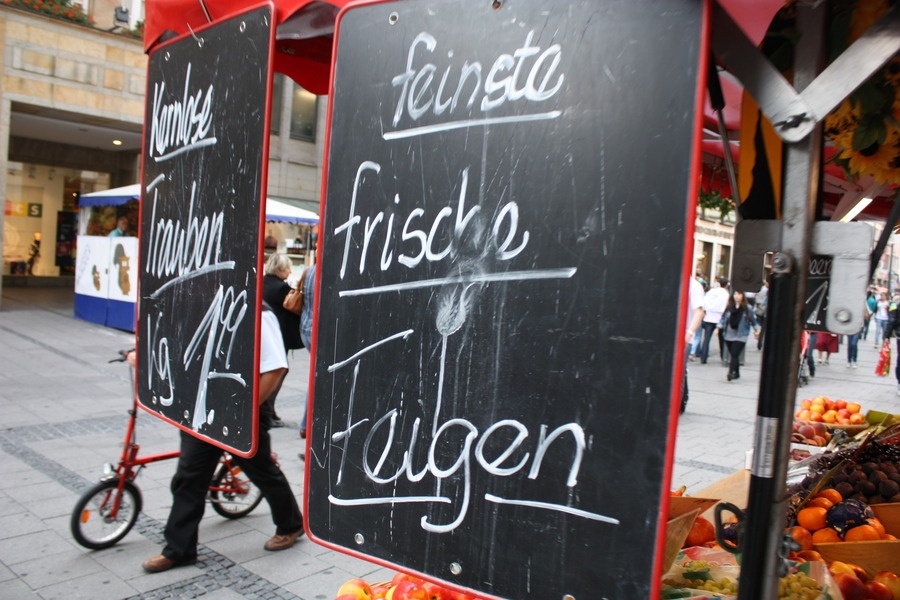 Kernlose
Trauben
kg 1.99
feinste
frische
Feigen